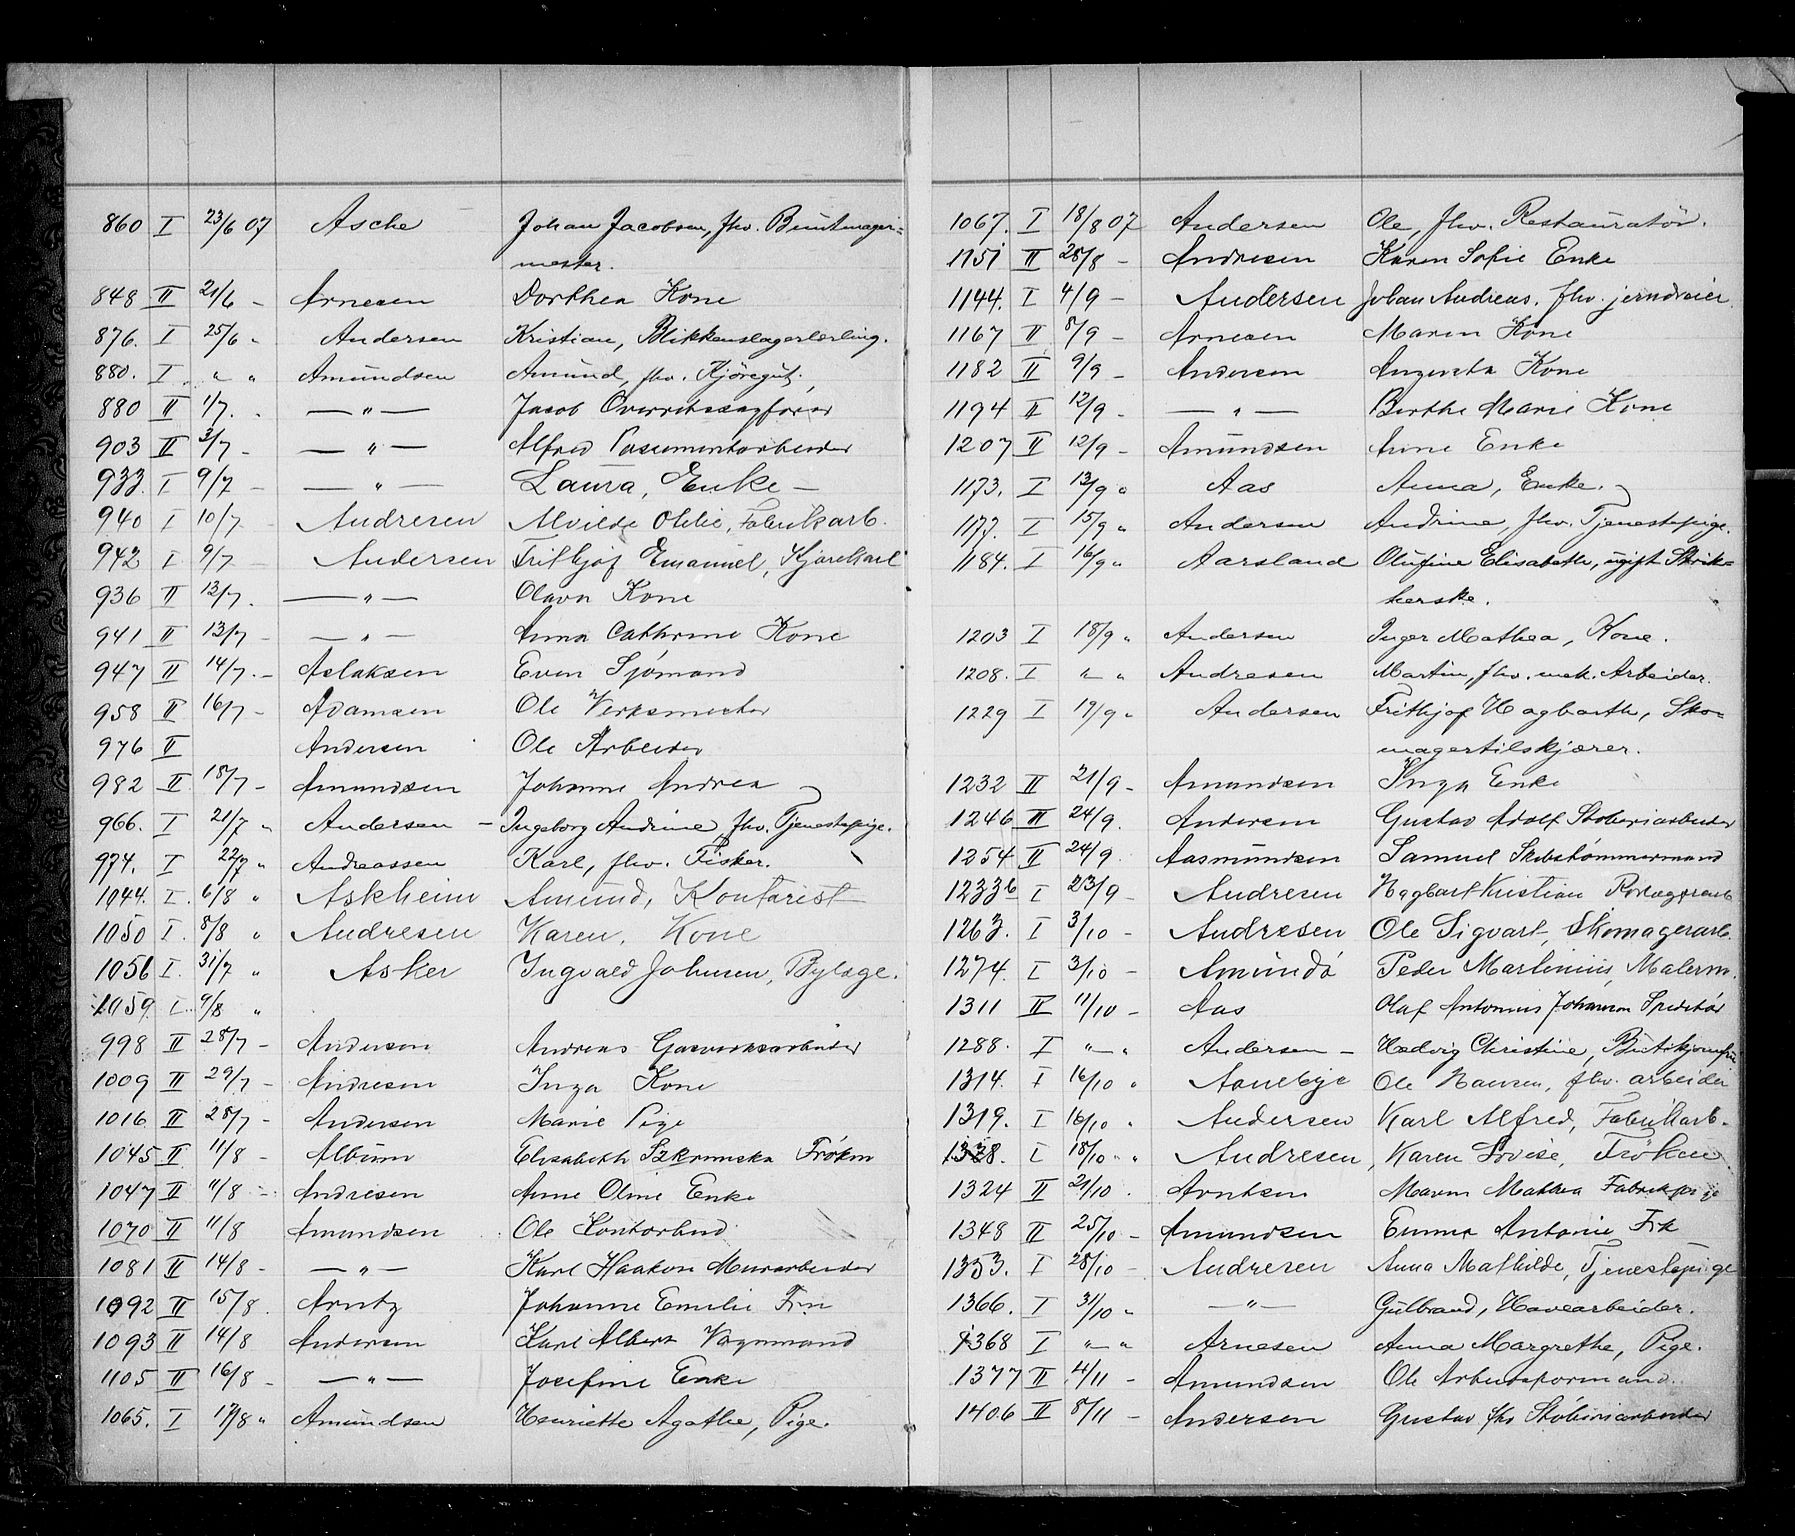 860 I 23/6 07 Asche Johan Jacobsen, fhv. Buntmager=
mester.
848 II 21/6 - Arnesen Dorthea Kone
876. I 25/6 " Andersen Kristian, Blikkenslagerlærling.
880. I " " Amundsen Amund, fhv. Kjöregut.
880 II 1/7. - — " — Jacob Overretssagfører
903 II 3/7 - — " — Alfred Possementarbeider
933. I 9/7 - — " — Laura, Enke —
940 I 10/7 - Andresen Alvilde Othilie, Fabrikarb.
942 I. 9/7 - Andersen Frithjof Emanuel, Kjørekarl
936 II 12/7. — " — Olava Kone
941 II 13/7 - — " — Anna Cathrine Kone
947 II 14/7. - Aslaksen Even Sjømand
958 II 16/7 - Adamsen Ole Verksmester
976 II Andersen Ole Arbeider
982 II 18/7 - Amundsen Johanne Andrea
966. I 21/7 " Andersen - Ingeborg Andrine, fhv. Tjenestepige.
974. I 22/7 " Andreassen Karl, fhv. Fisker.
1044. I. 6/8 " Askheim Amund, Kontorist
1050 I. 8/8 " Andresen Karen, Kone
1056 I. 31/7 " Asker Ingvald Johnsen, Bylæge.
1059. I. 9/8 "
998 II 28/7 - Andersen Andreas Gasverksarbeider
1009 II 29/7 - Andresen Inga Kone
1016 II 28/7 - Andersen Marie Pige
1045 II 11/8 - Album Elisabeth Frøken
1047 II 11/8 - Andresen Anne Oline Enke
1070 II 11/8 Amundsen Ole Kontorbud
1081 II 14/8 - — " — Karl Haakon Murarbeider
1092 II 15/8. Arntz Johanne Emilie Fru
1093 II 14/8 Andersen Karl Albert Vognmand
1105 II 16/8 - — " — Josefine Enke
1065. I 17/8 " Amundsen Henriette Agathe, Pige.
1067. I 18/8 07 Andersen Ole, fhv. Restauratør.
1151 II 28/8 - Andresen Karen Sofie Enke
1144. I 4/9 - Andersen Johan Andreas, fhv. jerndreier
1167 II 8/9 - Arnesen Maren Kone
1182 II 9/9 - Andersen Augusta Kone
1194 II 12/9 - — " — Berthe Marie Kone
1207 II 12/9 - Amundsen Anne Enke
1173. I 13/9 " Aas Anna, Enke.
1177. I 15/9 " Andersen Andrine, fhv. Tjenestepige.
1184. I 16/9 " Aarsland Olufine Elisabeth, ugift Strik=
kerske.
1203 I 18/9 " Andersen Inger Mathea, Kone.
1208. I " " Andresen Martin, fhv. mek. Arbeider.
1229 I 19/9 " Andersen Frithjof Hagbarth, Sko=
magertilskjærer.
1232 II 21/9 - Amundsen Inga Enke
1246 II 24/9. Andersen Gustav Adolf Støberiarbeider
1254 II 24/9. Aasmundsen Samuel Skibstømmermand
1233b I 23/9 - Andresen Hagbart Kristian
1263. I 3/10 - Andresen Ole Sigvart, Skomagerarb.
1274. I 3/10 - Amundø Peder Martinius, Malerm.
1311 II 11/10 - Aas Olaf Antonius Johannson Speditør
1288. I " " Andersen - Hedvig Christine, Butikjomfru
1314. I 16/10 " Aanebye Ole Hansen, fhv. arbeider
1319. I 16/10 " Andersen Karl Alfred, Fabrikarb.
1328. I 18/10 " Andresen, Karen Lovise, Frøken
1324 II 21/10. Arntsen Maren Mathea Fabrikpige
1348 II 25/10 - Amundsen Emma Antonie Frk
1353. I 28/10 - Andresen Anna Mathilde, Tjenestepige
1366. I 31/10 " — " — Gulbrand, Havearbeider.
1368 I " " Arnesen Anna Margrethe, Pige.
1377 II 4/11 - Amundsen Ole Arbeidsformand.
1406 II 8/11 - Andersen Gustav fhv Støberiarbeider